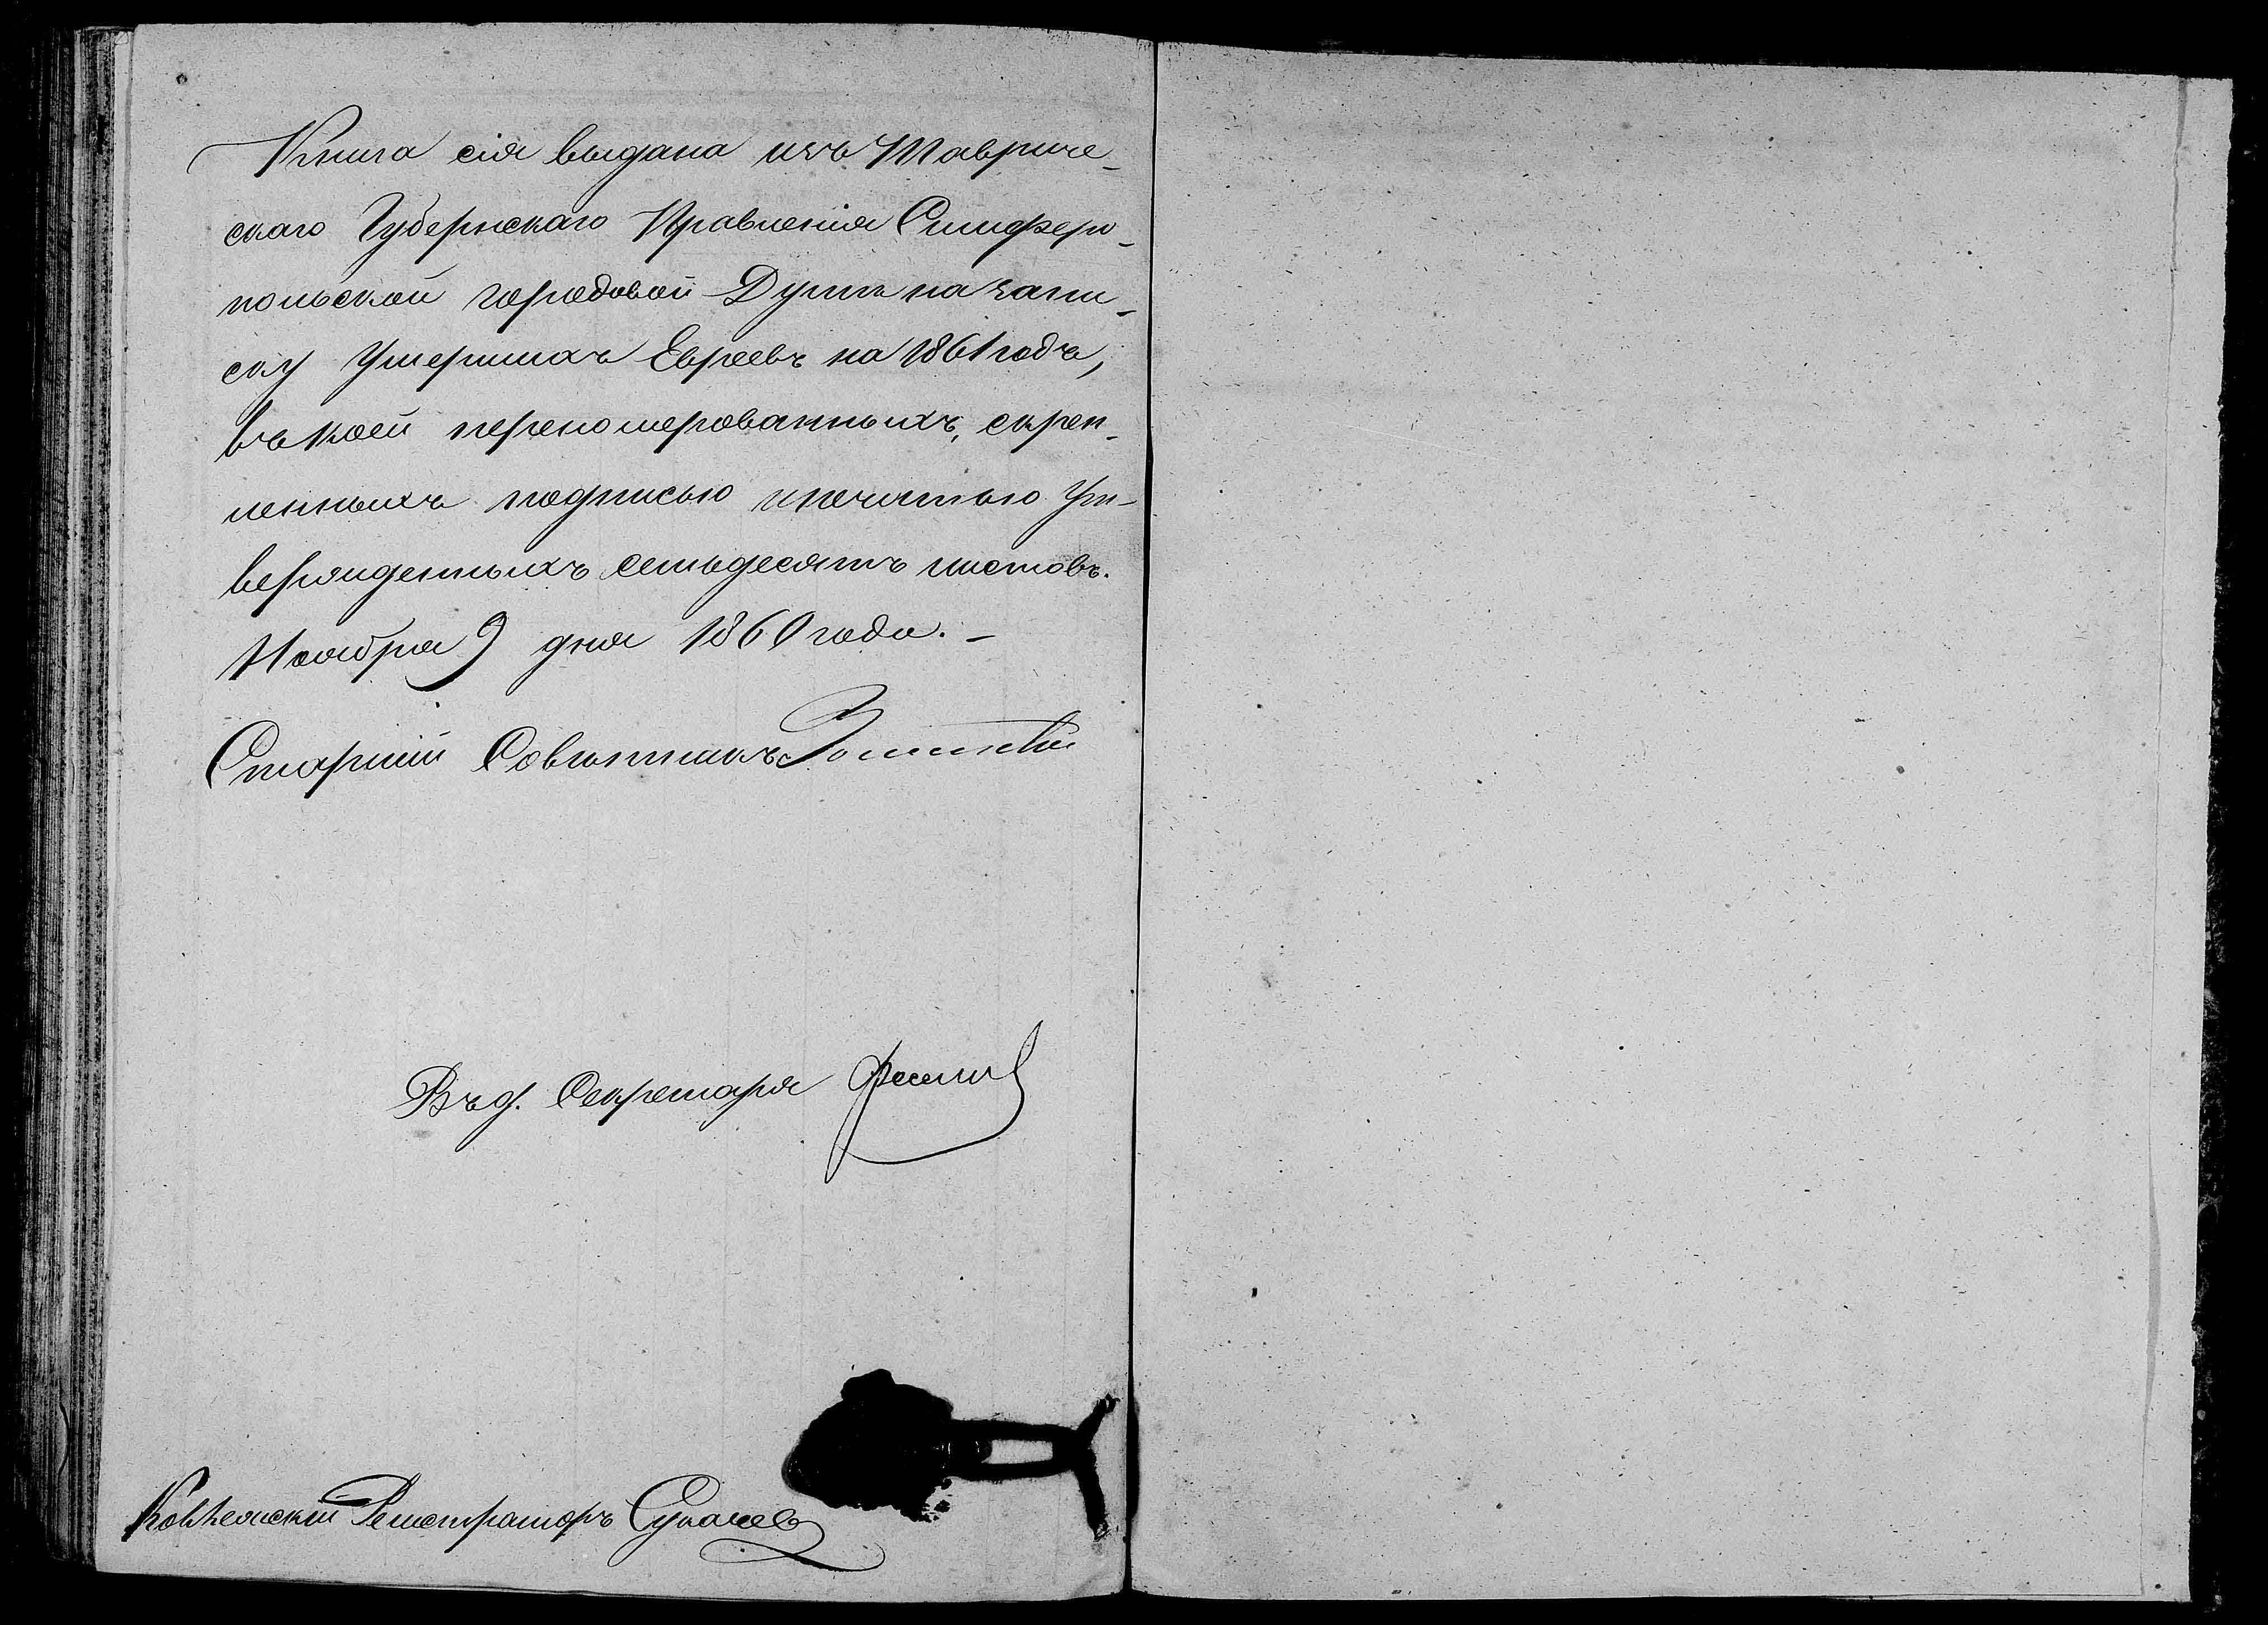 Книга сія выдана изъ Тавриче-
скаго Губернскаго Правленія Симферо-
польской городовой Думѣ на запи-
ску Умершихъ Евреевъ на 1861 годъ,
въ коей переномерованныхъ, скреп-
ленныхъ подписью и печатью Ут-
вержденныхъ семьдесятъ листовъ.
Ноября 9 дня 1860 года. –
Старшій Совѣтникъ
Въ д. Секретаря
Коллежскій Регистраторъ